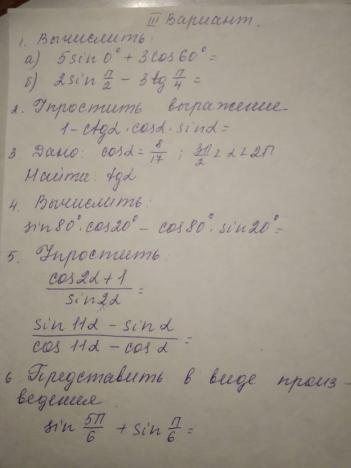 III Вариант.
1. Вычислить:
а) 5sin0° + 3cos60° =
б) 2sin π/2 - 3tg π/4 =
2. Упростить выражение
1 - ctgα · cosα · sinα =
3 Дано: cosα = 8/17 ; 3π/2 < α < 2π
Найти: tgα
4. Вычислить:
sin80° · cos20° - cos80° · sin20° =
5. Упростить:
cos2α + 1 / sin2α =
sin 11α - sin α / cos 11α - cos α =
6 Представить в виде произ-
ведения
sin 5π/6 + sin π/6 =